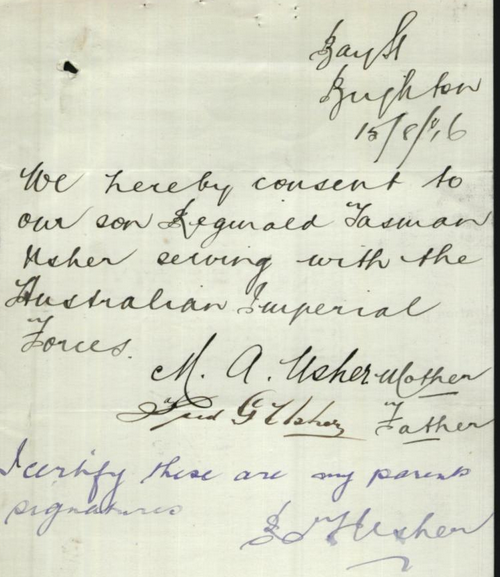 Bay St
Brighton
15/8/16
We hereby consent to
our son Reginald Tasman
Usher serving with the
Australian Imperial
Forces.
M. A. Usher Mother
Fred G Usher Father
I certify these are my parents
signatures
R T Usher